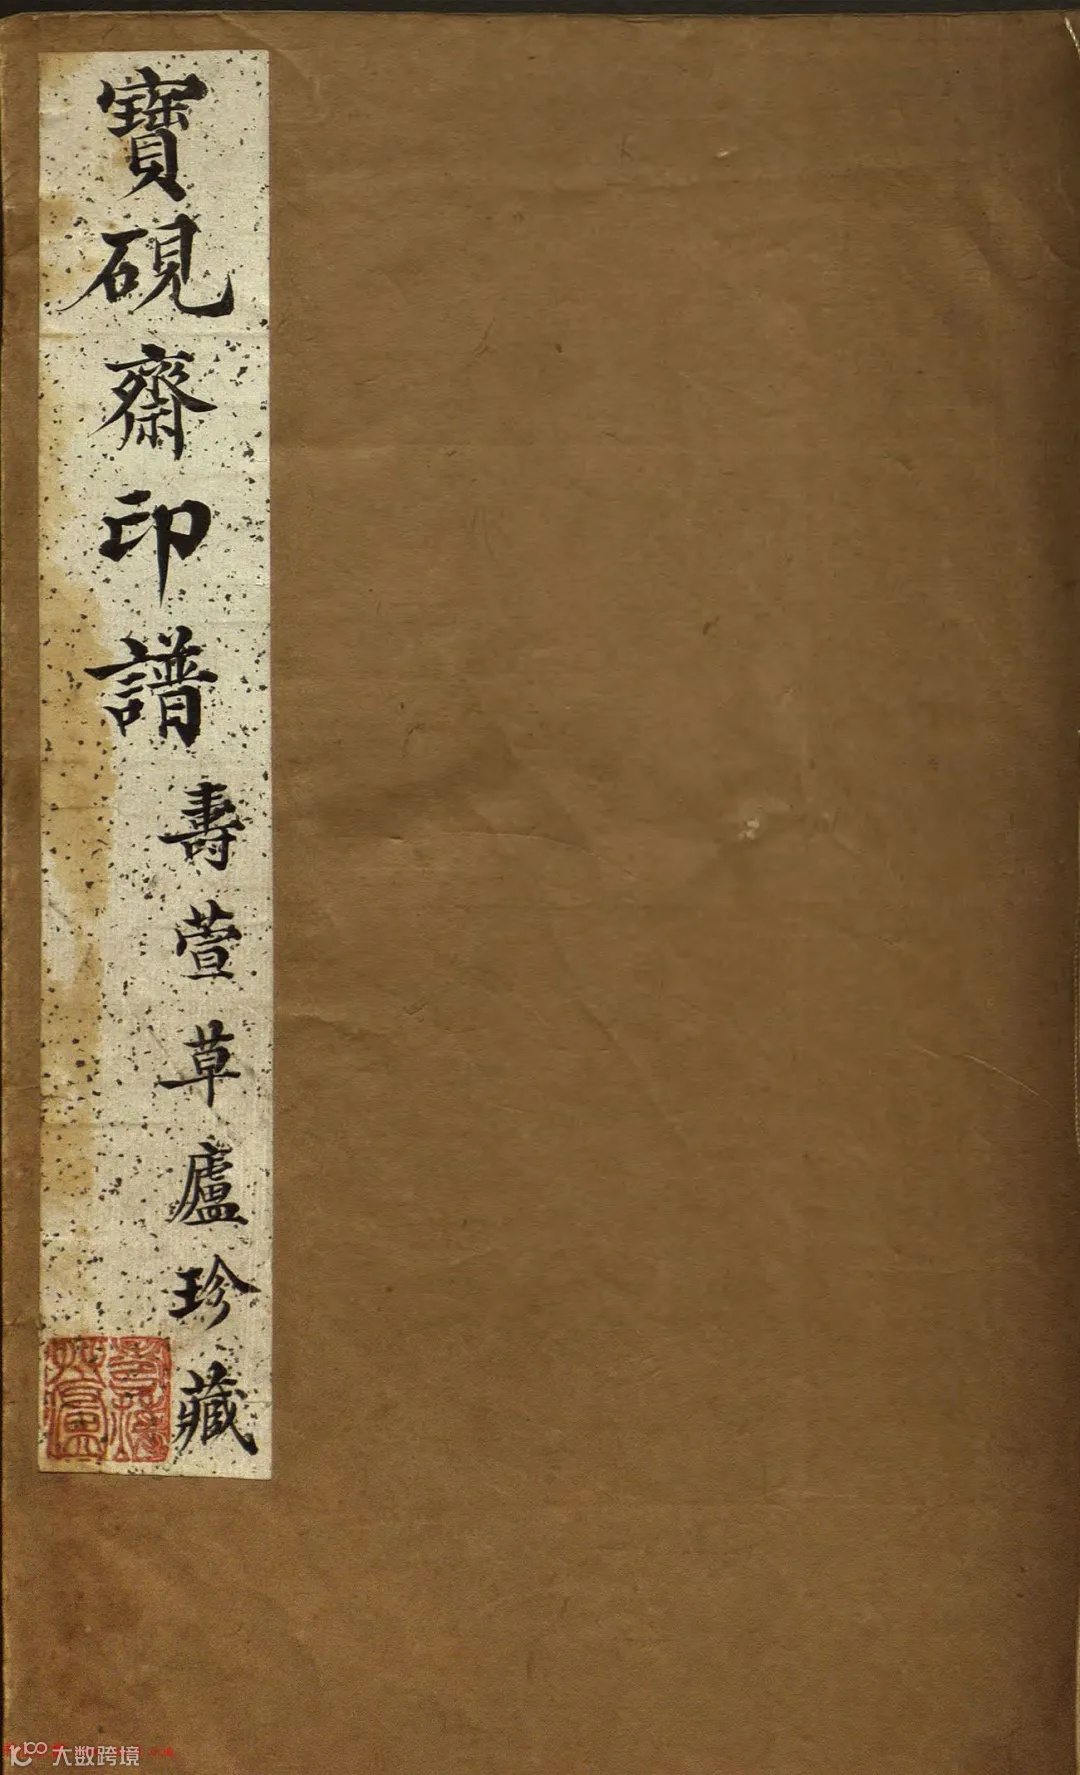 寶硯齋印譜
壽萱草廬珍藏
大数跨境